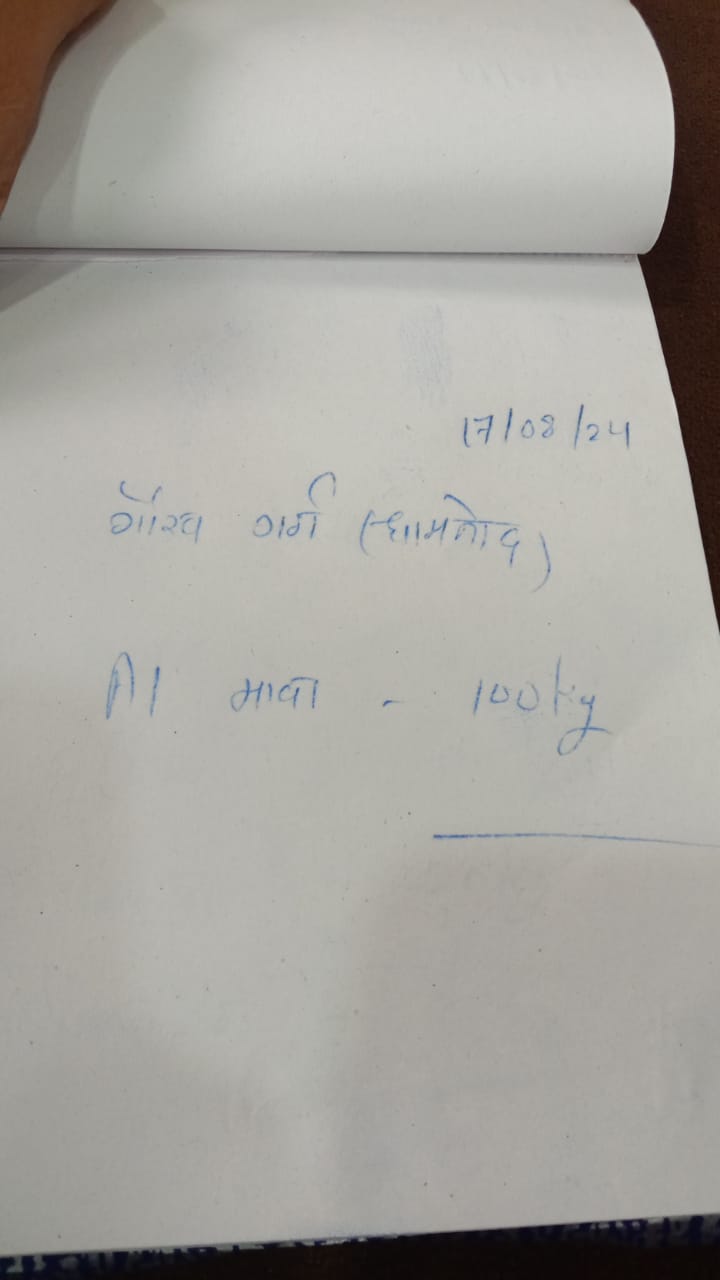 17/08/24
गौरव गर्ग (धामनोद)
A1 मावा - 100kg